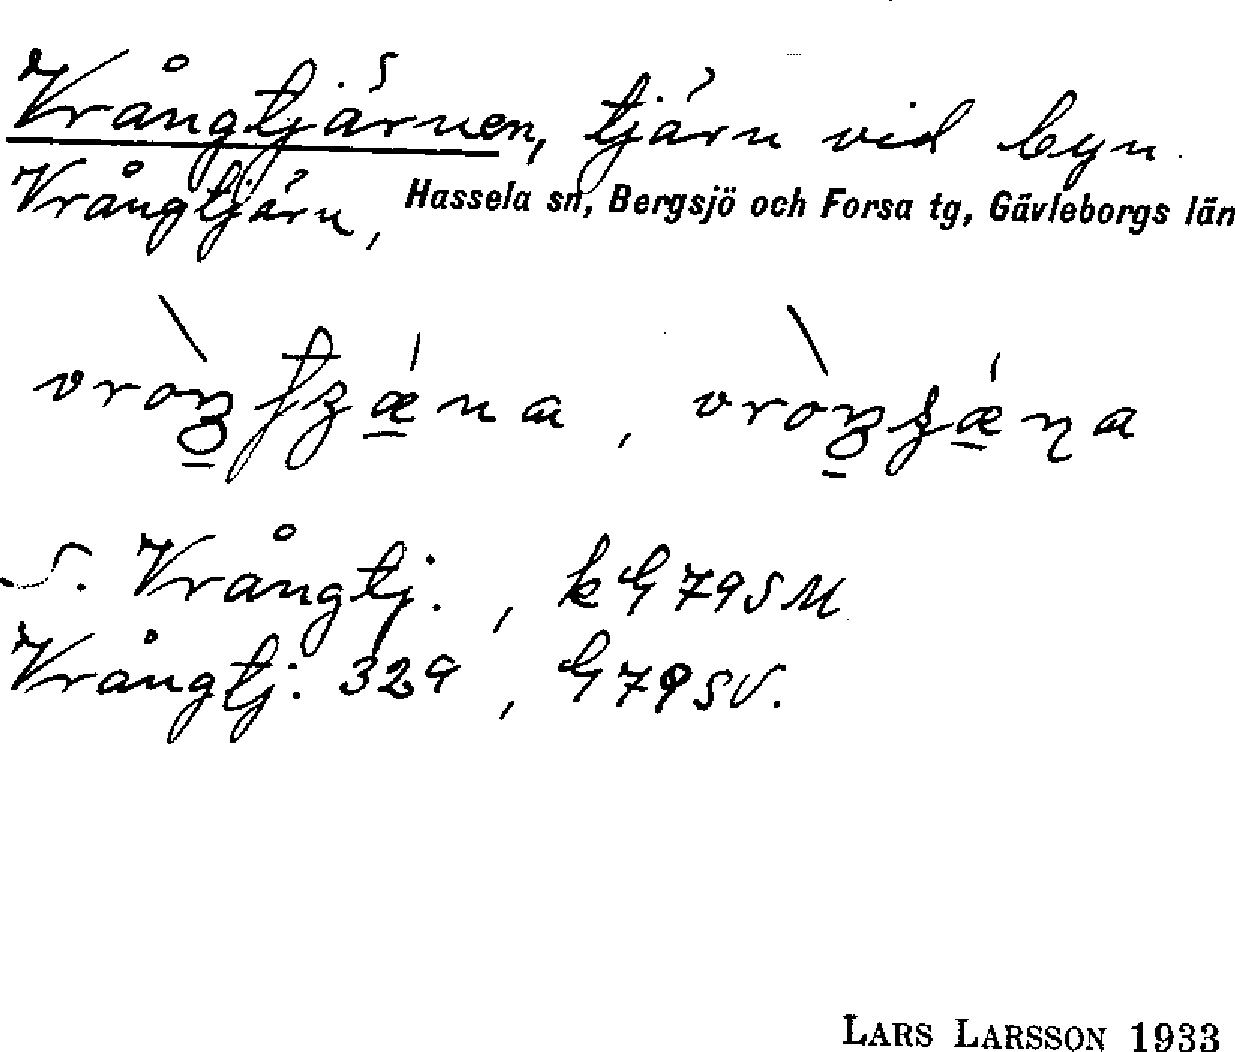 Vrångtjärnen, tjärn vid byn
Vrångtjärn, Hassela sn, Bergsjö och Forsa tg, Gävleborgs län
S. Vrångtj. , k G 79 SM
Vrångtj. 329 , G 79 SV.
LARS LARSSON 1933